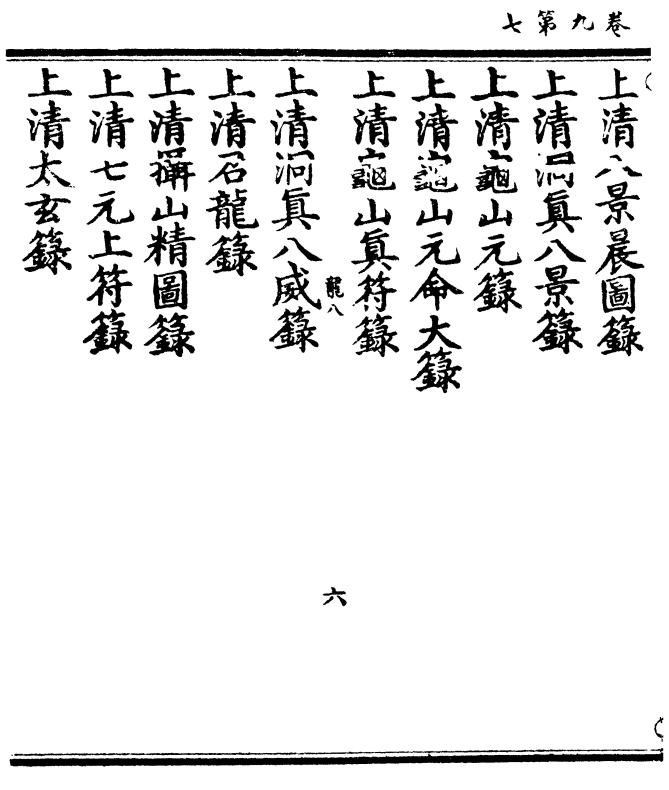 卷九第七
上清八景晨圖籙
上清洞眞八景籙
上清龜山元籙
上清龜山元命大籙
上清龜山眞符籙
龍八
六
上清洞眞八威籙
上清召龍籙
上清攝山精圖籙
上清七元上符籙
上清太玄籙